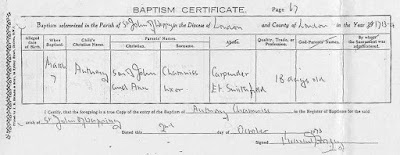 BAPTISM CERTIFICATE. Page 67
Baptism solemnized in the Parish of St John of Wapping in the Diocese of London and County of London in the Year 1713-4
Alleged Date of Birth. When Baptized. Child's Christian Name. Parents' Names. Christian. Surname. Abode. Quality, Trade, or Profession. God-Parents' Names. By whom the Sacrament was administered.
March 7 Anthony son of John Chamniss Carpender 18 days old
and Ann uxor Et Smithfield
I Certify, that the foregoing is a true Copy of the Entry of the Baptism of Anthony Chamniss in the Register of Baptisms for the said
St John of Wapping
Dated this 2nd day of October
Signed